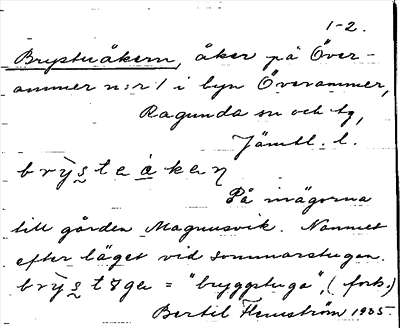 1-2.
Brystuåkern, åker på Över-
ammer n:r 1 i byn Överammer,
Ragunda sn och tg,
Jämtl. l.
På inägorna
till gården Magnusvik. Namnet
efter läget vid sommarstugan.
= "bryggstuga", (forts.)
Bertil Flemström 1935.